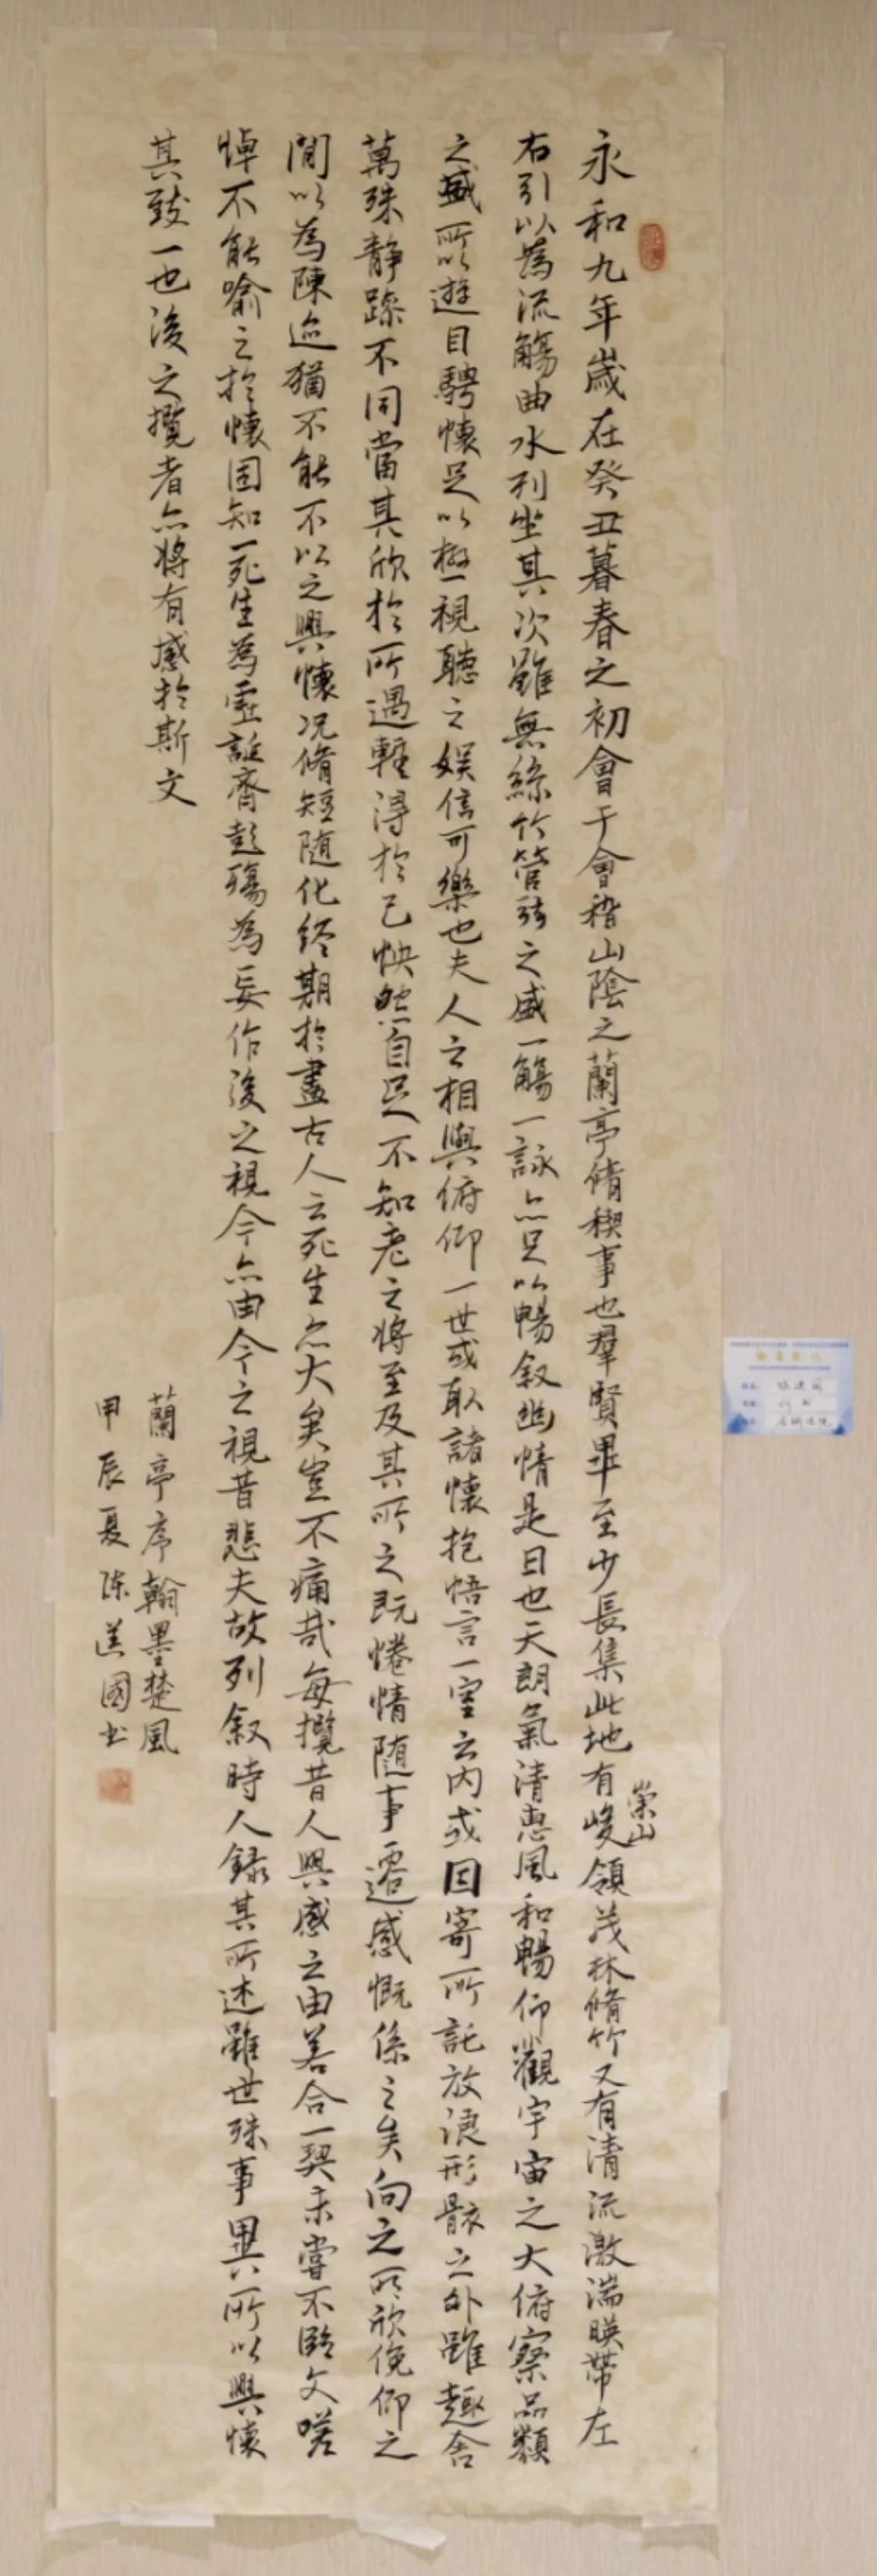 永和九年歲在癸丑暮春之初會于會稽山陰之蘭亭脩稧事也羣賢畢至少長集此地有崇山峻領茂林脩竹又有清流激湍暎帶左
右引以為流觴曲水列坐其次雖無絲竹管弦之盛一觴一詠亦足以暢叙幽情是日也天朗氣清惠風和暢仰觀宇宙之大俯察品類
之盛所以遊目騁懷足以極視聽之娛信可樂也夫人之相與俯仰一世或取諸懷抱悟言一室之內或因寄所託放浪形骸之外雖趣舍
萬殊靜躁不同當其欣於所遇輕得於己怏然自足不知老之將至及其所之既惓情隨事遷感慨係之矣向之所欣俛仰之
閒以為陳迹猶不能不以之興懷況脩短隨化終期於盡古人云死生亦大矣豈不痛哉每攬昔人興感之由若合一契未嘗不臨文嗟
悼不能喻之於懷固知一死生為虛誕齊彭殤為妄作後之視今亦由今之視昔悲夫故列叙時人錄其所述雖世殊事異所以興懷
其致一也後之攬者亦將有感於斯文
蘭亭序翰墨楚風
甲辰夏陳送國书